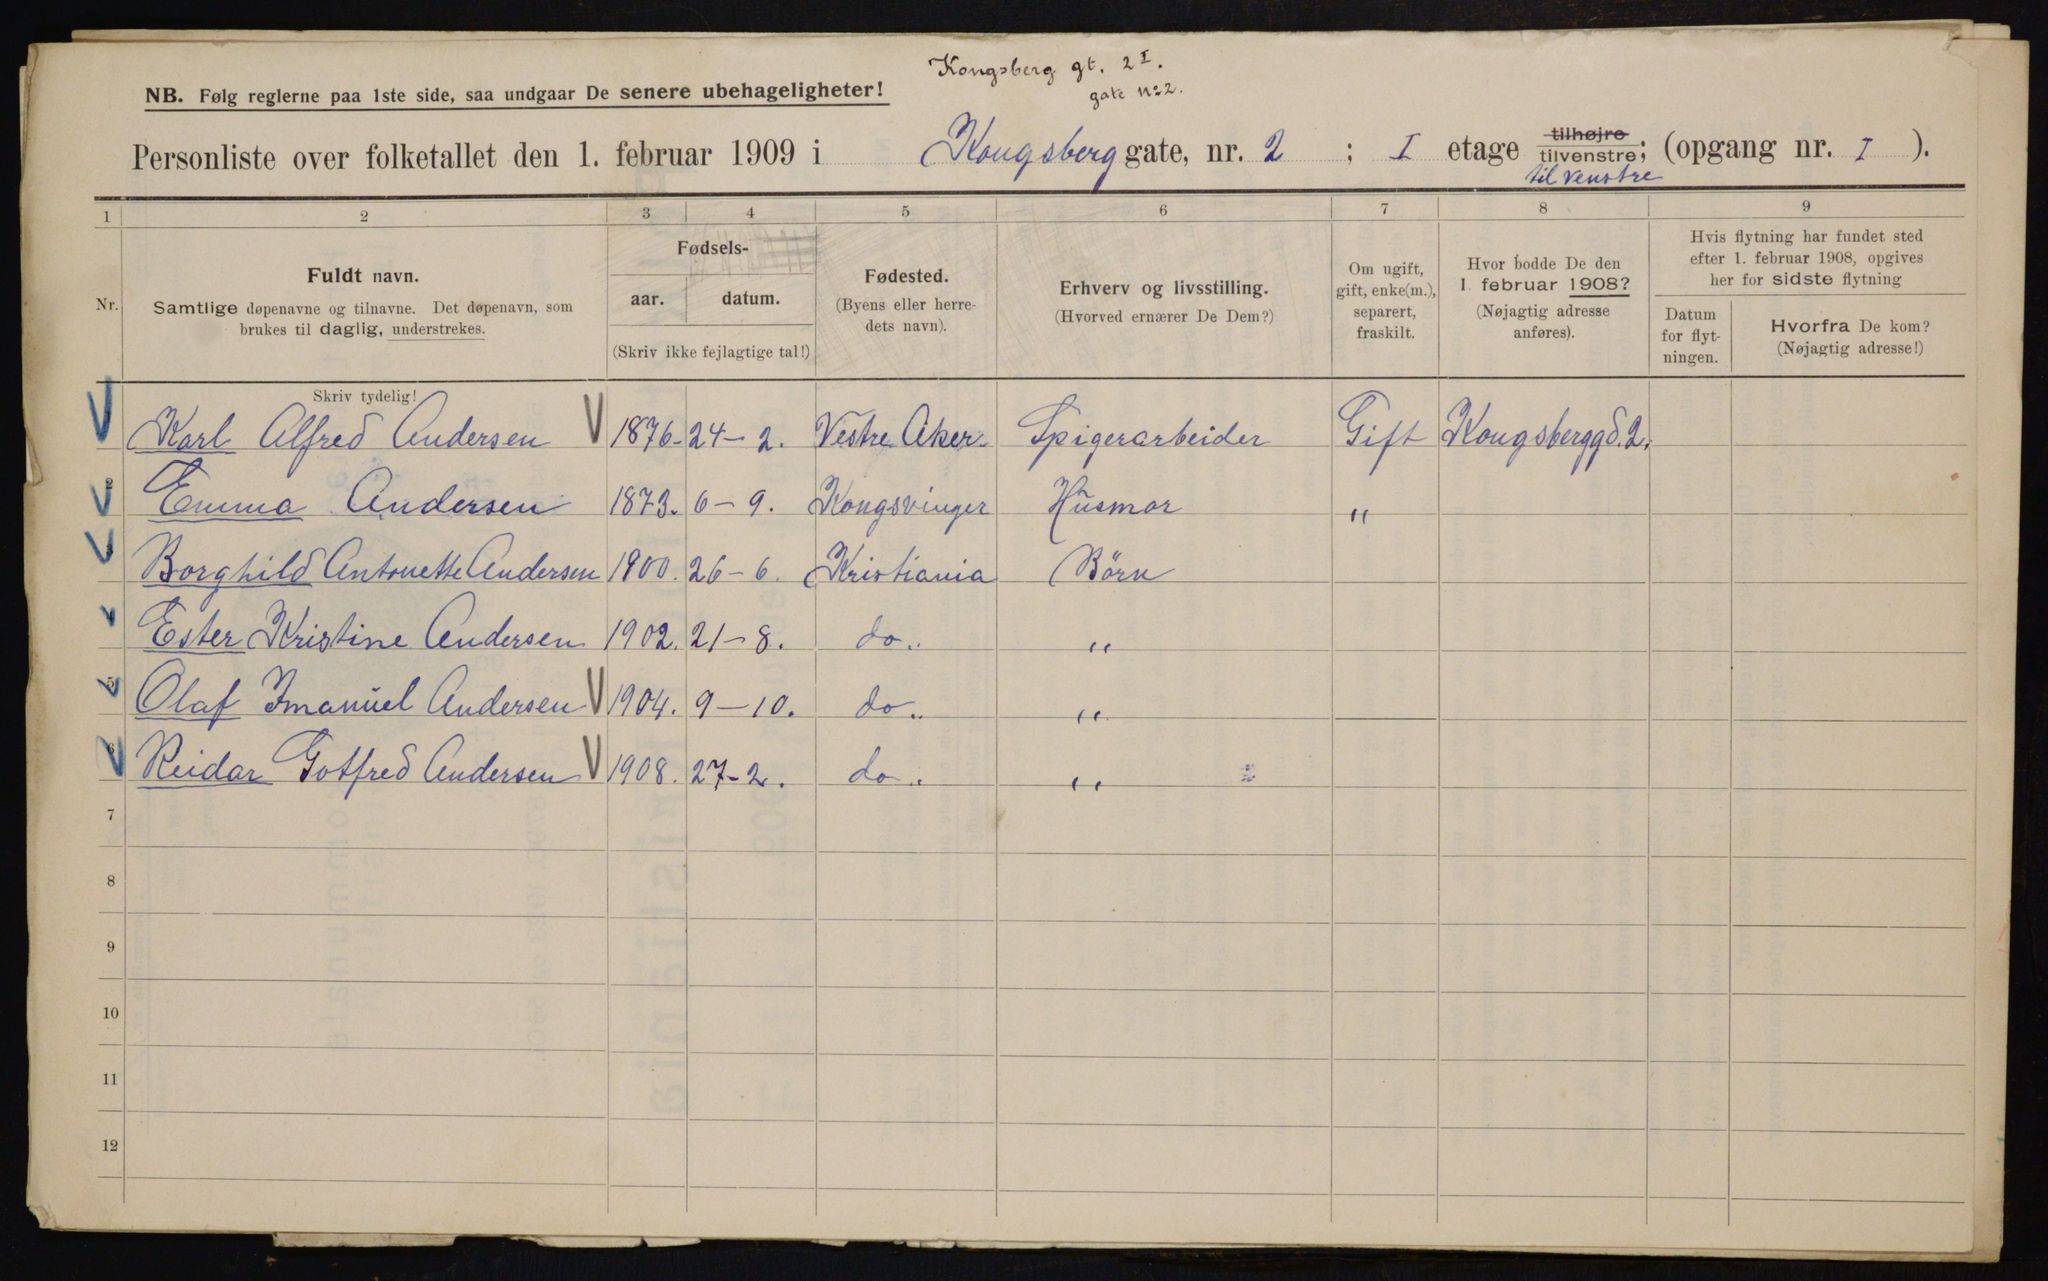 Kongsberg gt. 2 I.
gate No 2.
NB. Følg reglerne paa 1ste side, saa undgaar De senere ubehageligheter!
Personliste over folketallet den 1. februar 1909 i Kongsberg gate, nr. 2 ; I etage tilhøjre tilvenstre; (opgang nr. I ).
til venstre
1 2 3 4 5 6 7 8 9
Nr.
Fuldt navn.
Samtlige døpenavne og tilnavne. Det døpenavn, som
brukes til daglig, understrekes.
Fødsels-
aar. datum.
(Skriv ikke fejlagtige tal!)
Fødested.
(Byens eller herre-
dets navn).
Erhverv og livsstilling.
(Hvorved ernærer De Dem?)
Om ugift,
gift, enke(m.),
separert,
fraskilt.
Hvor bodde De den
1. februar 1908?
(Nøjagtig adresse
anføres).
Hvis flytning har fundet sted
efter 1. februar 1908, opgives
her for sidste flytning
Datum
for flyt-
ningen.
Hvorfra De kom?
(Nøjagtig adresse!)
Skriv tydelig!
Karl Alfred Andersen 1876. 24-2. Vestre Aker. Spigerarbeider Gift Kongsberggd. 2.
2 Emma Andersen 1873. 6-9. Kongsvinger Husmor "
Borghild Antonette Andersen 1900. 26-6. Kristiania Börn
Ester Kristine Andersen 1902. 21-8. do.. "
5 Olaf Imanuel Andersen 1904. 9-10. do.. "
6 Reidar Gotfred Andersen 1908. 27-2. do.. "
7
8
9
10
11
12